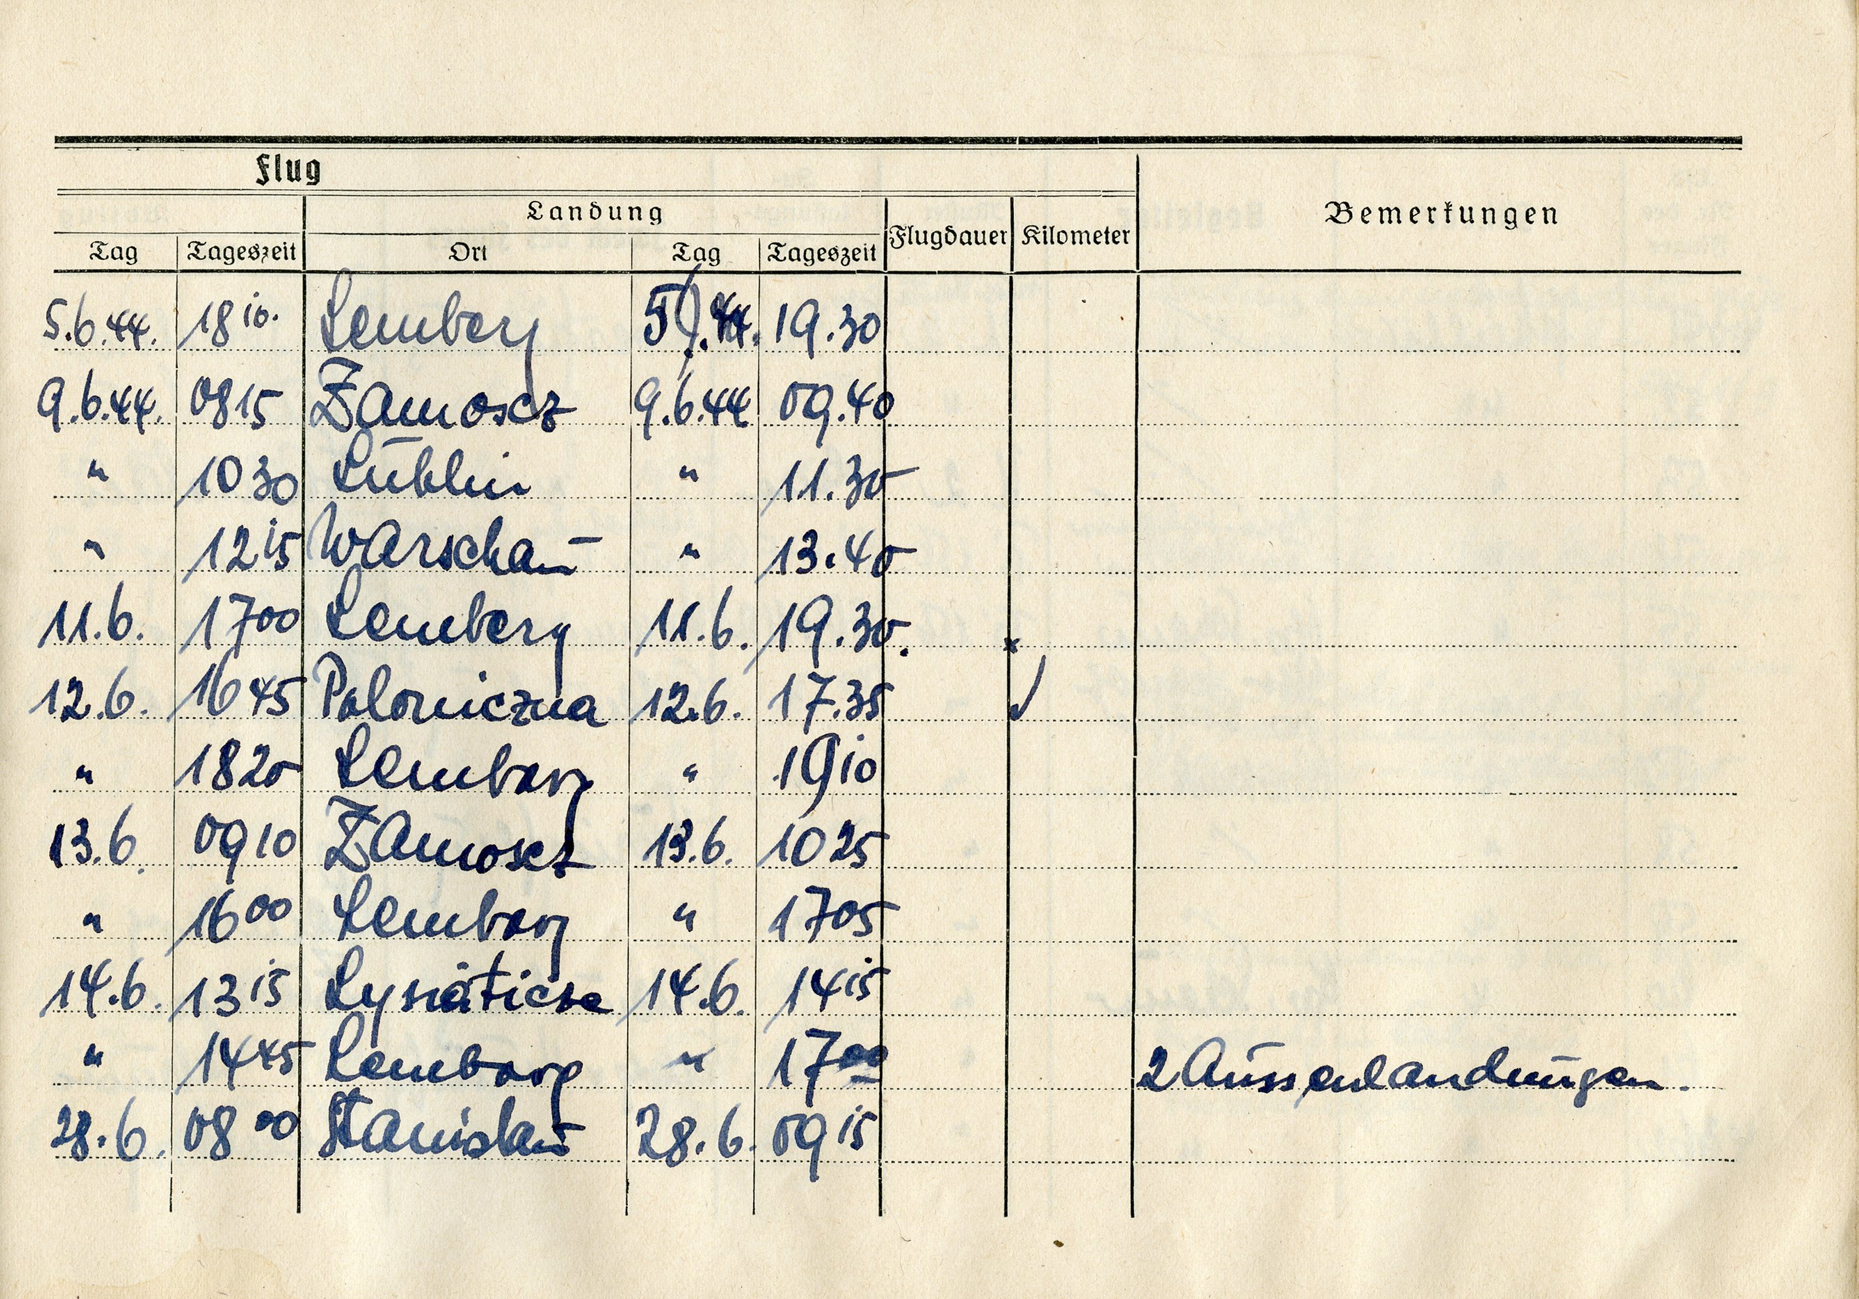 Flug
Landung
Flugdauer Kilometer Bemerkungen
Tag Tageszeit Ort Tag Tageszeit
5.6.44. 18 10. Lemberg 5 44. 19.30
9.6.44. 0815 Zamoscz 9.6.44 09.40
" 1030 Lublin " 11.30
" 12 15 Warschau " 13.40
11.6. 17 00 Lemberg 11.6. 19.30.
12.6. 16 45 Poloniczna 12.6. 17.35
" 1820 Lemberg " 19 10
13.6. 09 10 Zamosct 13.6. 10 25
" 16 00 Lemberg " 17 05
14.6. 13 15 14.6. 14 15
" 14 45 Lemberg " 17 00 2 Aussenlandungen.
28.6. 08 00 Stanislau 28.6. 09 15